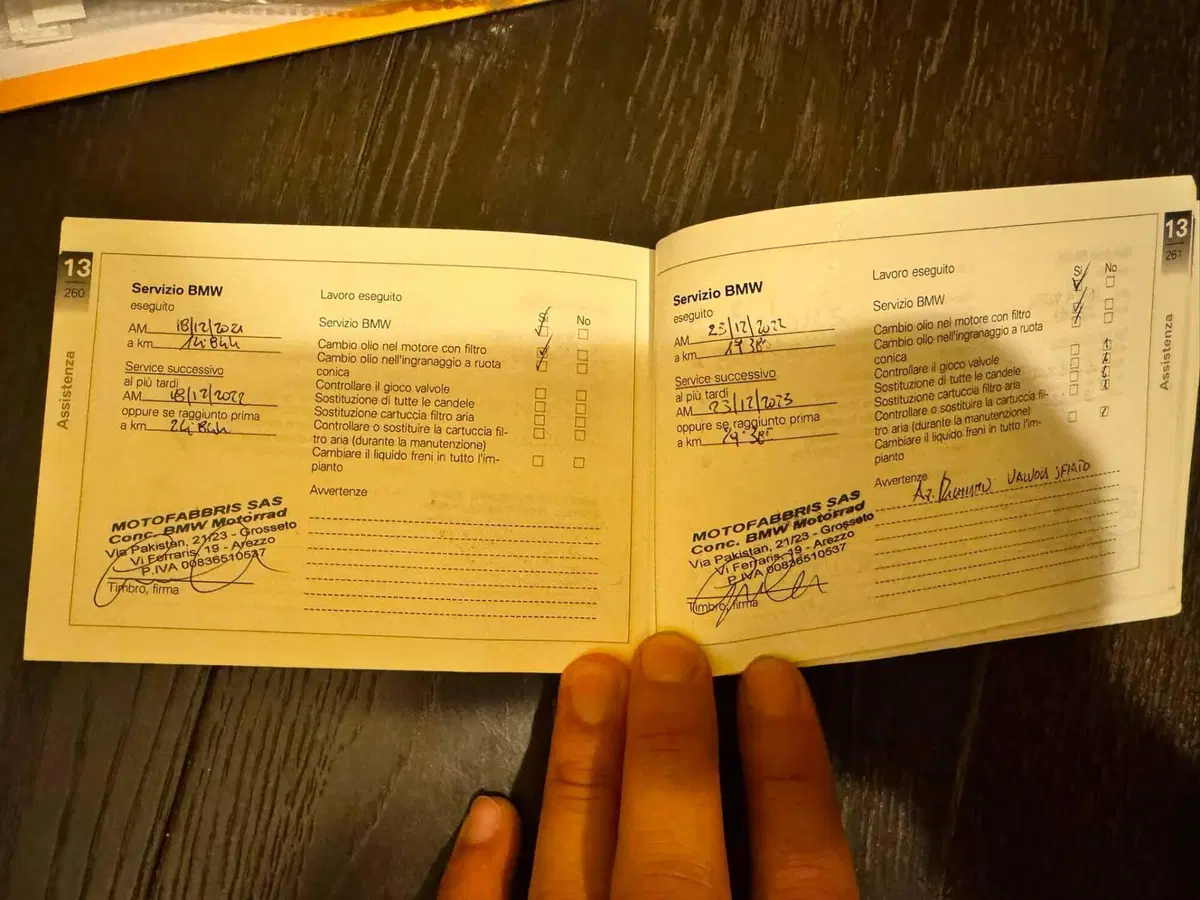 13
260
Assistenza
Servizio BMW
eseguito
AM 18/12/2021
a km
Service successivo
al più tardi
AM 18/12/2022
oppure se raggiunto prima
a km
MOTOFABBRIS SAS
Conc. BMW Motorrad
Via Pakistan, 21/23 - Grosseto
Vi Ferraris, 19 - Arezzo
P.IVA 00836510537
Timbro, firma
Lavoro eseguito
Sì No
Servizio BMW
Cambio olio nel motore con filtro
Cambio olio nell'ingranaggio a ruota
conica
Controllare il gioco valvole
Sostituzione di tutte le candele
Sostituzione cartuccia filtro aria
Controllare o sostituire la cartuccia fil-
tro aria (durante la manutenzione)
Cambiare il liquido freni in tutto l'im-
pianto
Avvertenze
13
261
Assistenza
Servizio BMW
eseguito
AM 23/12/2022
a km
Service successivo
al più tardi
AM 23/12/2023
oppure se raggiunto prima
a km
MOTOFABBRIS SAS
Conc. BMW Motorrad
Via Pakistan, 21/23 - Grosseto
Vi Ferraris, 19 - Arezzo
P.IVA 00836510537
Timbro, firma
Lavoro eseguito
Sì No
Servizio BMW
Cambio olio nel motore con filtro
Cambio olio nell'ingranaggio a ruota
conica
Controllare il gioco valvole
Sostituzione di tutte le candele
Sostituzione cartuccia filtro aria
Controllare o sostituire la cartuccia fil-
tro aria (durante la manutenzione)
Cambiare il liquido freni in tutto l'im-
pianto
Avvertenze
VALVOLA SFIATO